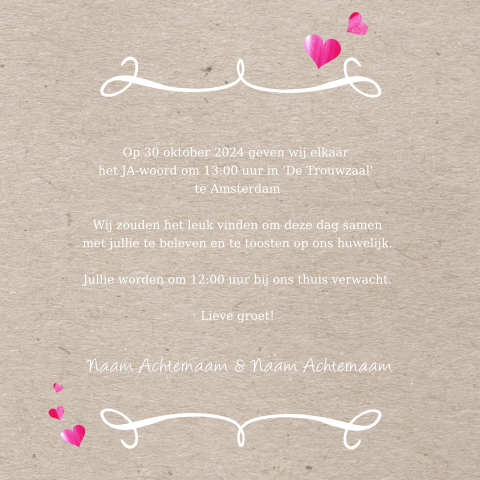 Op 30 oktober 2024 geven wij elkaar
het JA-woord om 13:00 uur in 'De Trouwzaal'
te Amsterdam
Wij zouden het leuk vinden om deze dag samen
met jullie te beleven en te toosten op ons huwelijk.
Jullie worden om 12:00 uur bij ons thuis verwacht.
Lieve groet!
Naam Achternaam & Naam Achternaam